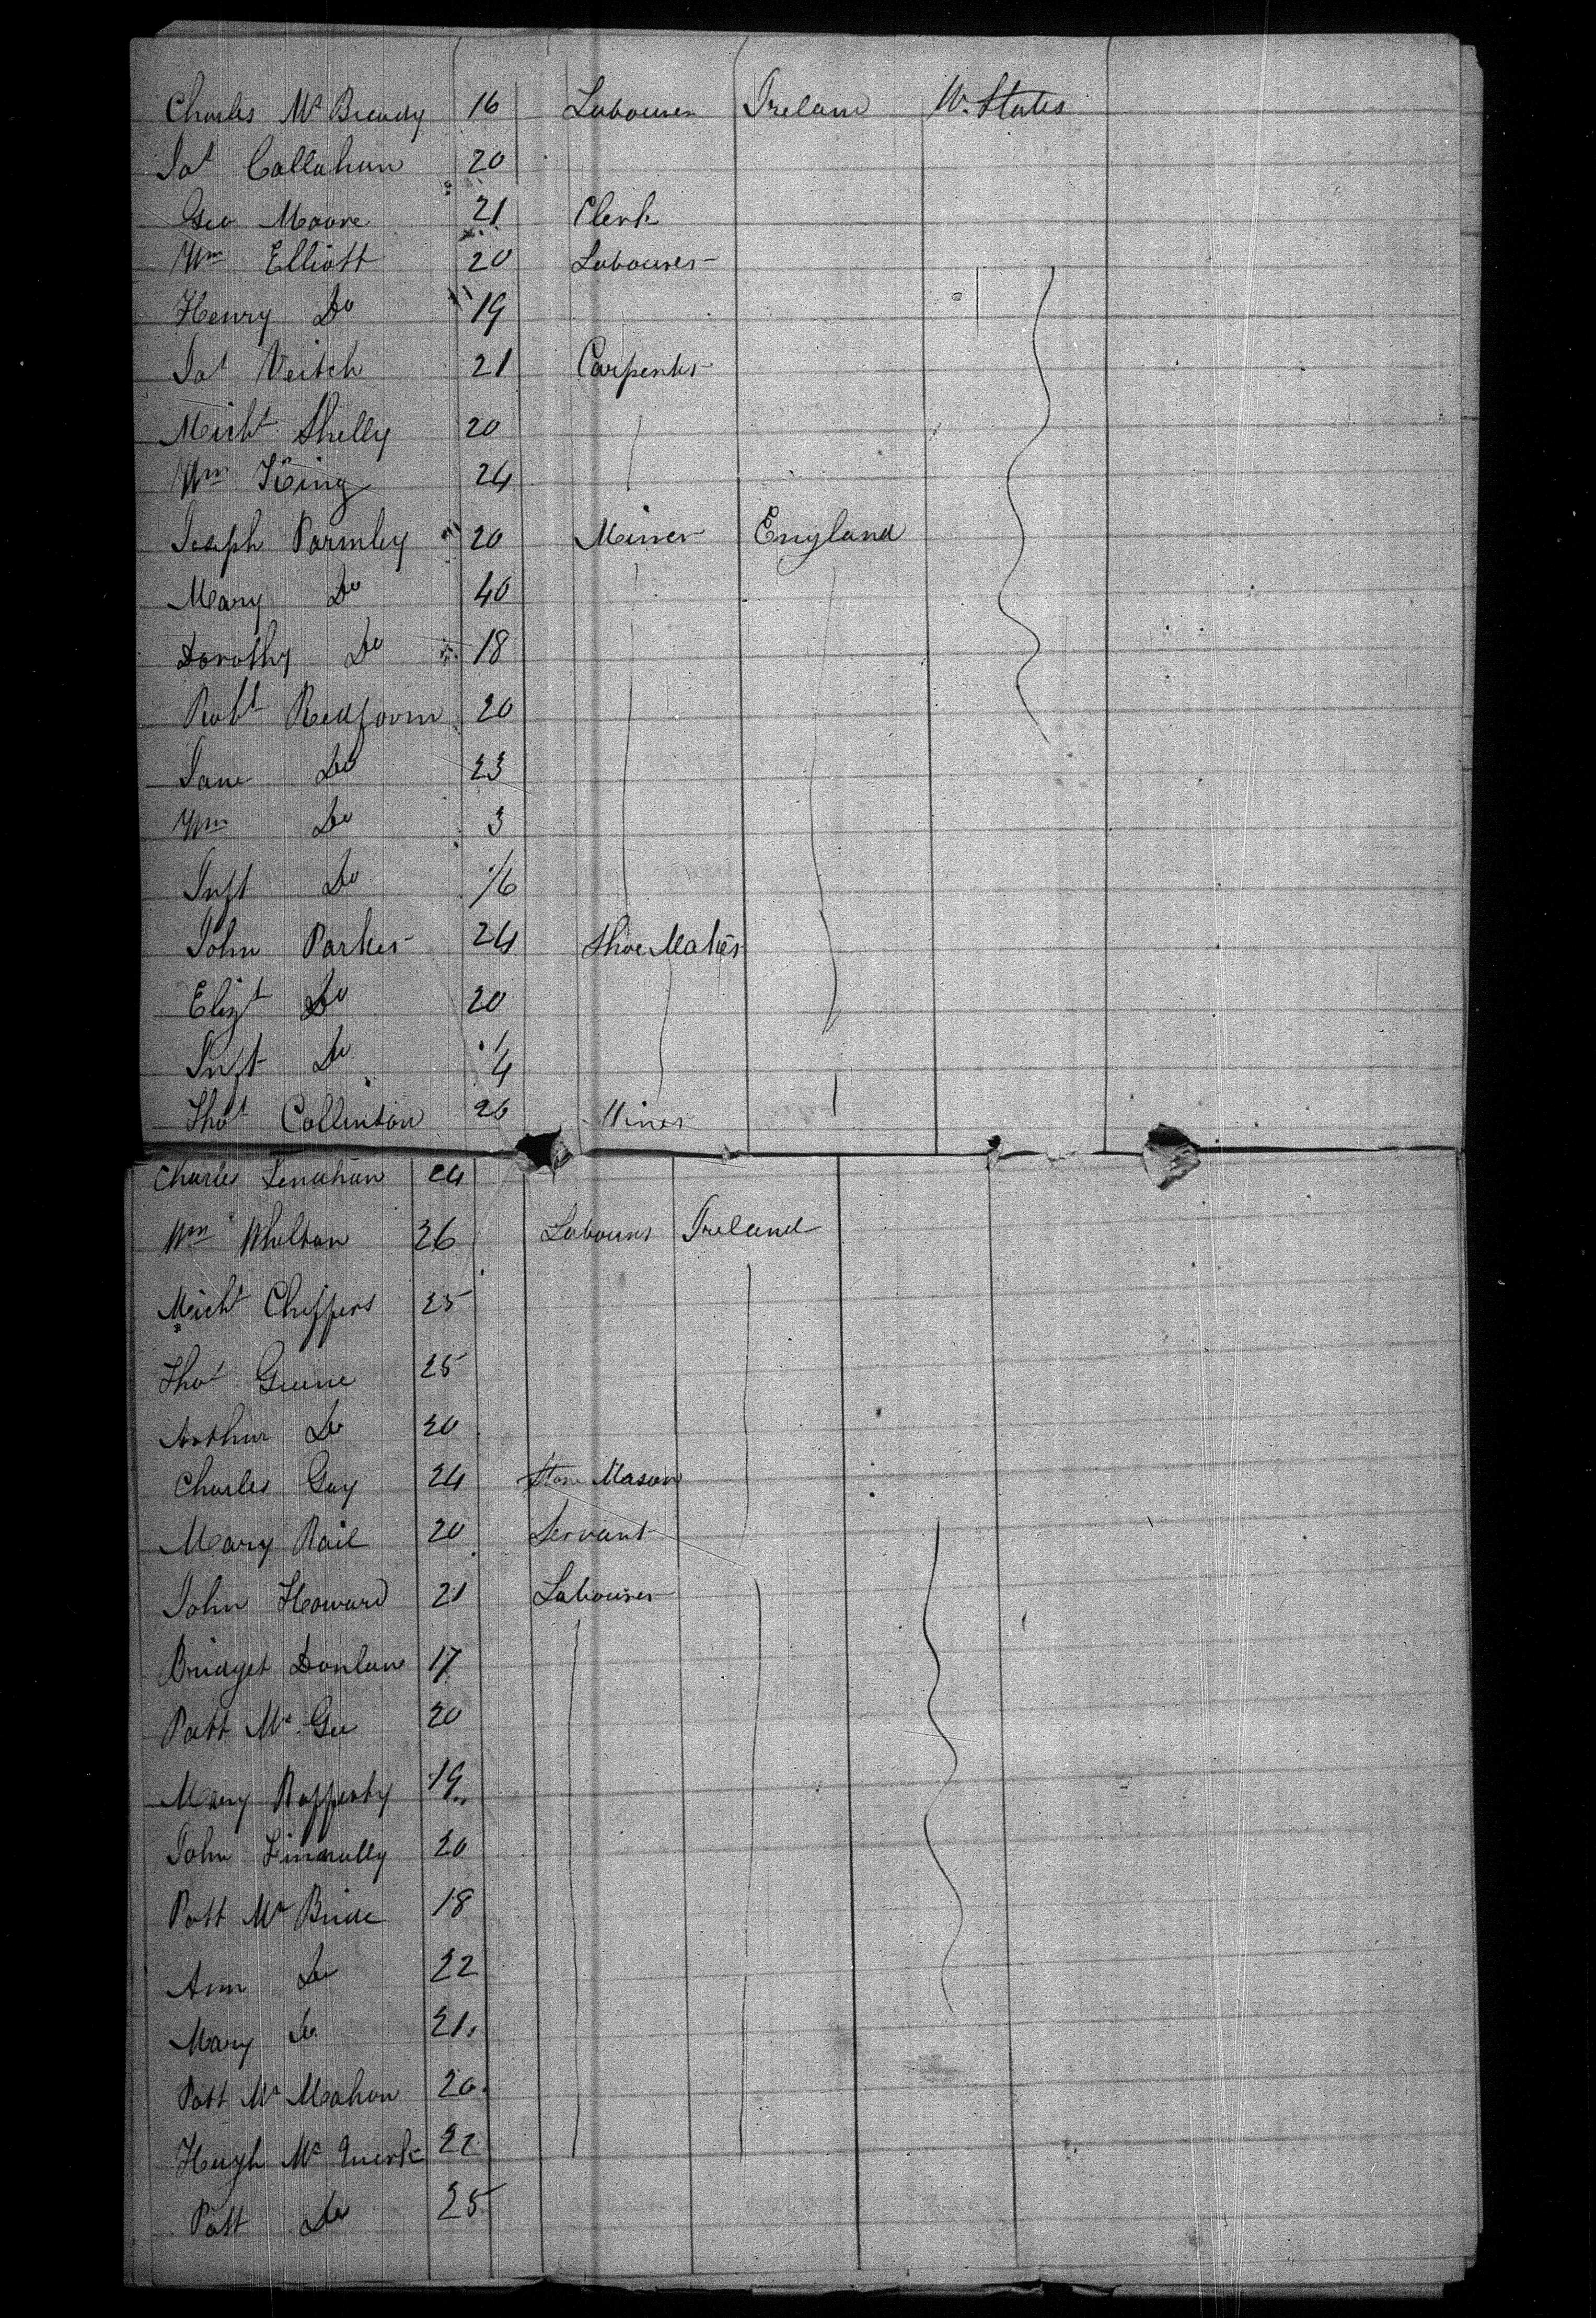 Charles Mc Bready 16 Labourer Ireland U. States
Jas Callahan 20
Geo Moore 21 Clerk
Wm Elliott 20 Labourer
Henry Do 19
Jas Veitch 21 Carpenter
Michl Shelly 20
Wm King 24
Joseph Parmley 20 Miner England
Mary Do 40
Dorothy Do 18
Robt Redfoorn 20
Jane Do 23
Wm Do 3
Inft Do 1/6
John Parker 24 Shoe Maker
Elizt Do 20
Inft Do 1/4
Thos Collinson 26 Miner
Charles Lenahan 24
Wm Whelton 26 Labourer Ireland
Michl Cheffers 25
Thos Greene 25
Arthur Do 20
Charles Gay 24 Stone Mason
Mary Rail 20 Servant
John Howard 21 Labourer
Bridget Donlan 17
Patt Mc Gee 20
Mary Rafferty 19
John Finnully 20
Patt Mc Bride 18
Ann Do 22
Mary Do 21
Patt Mc Mahon 20
Hugh Mc 22
Patt Do 25